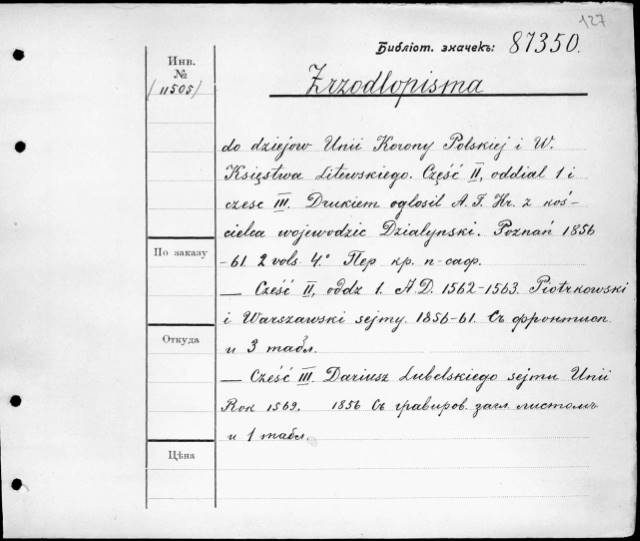 127
Библіот. значекъ: 87350.
Инв.
№
(11505)
Zrzodlopisma
do dziejow Unii Korony Polskiej i W.
Księstwa Litewskiego. Część II, oddial 1 i
czesc III. Drukiem oglosil A. T. Hr. z koś-
cielca wojewodzic Dzialynski. Poznań 1856
-61. 2 vols. 4° Пер кр. п-саф.
По заказу
— Cześć II, oddz 1. A.D. 1562-1563. Piotrkowski
i Warszawski sejmy. 1856-61. Съ фронтисп
Откуда
и 3 табл.
— Cześć III. Dariusz Lubelskiego sejmu Unii
Rok 1569. 1856 Съ гравиров. загл. листомъ
и 1 табл.
Цѣна